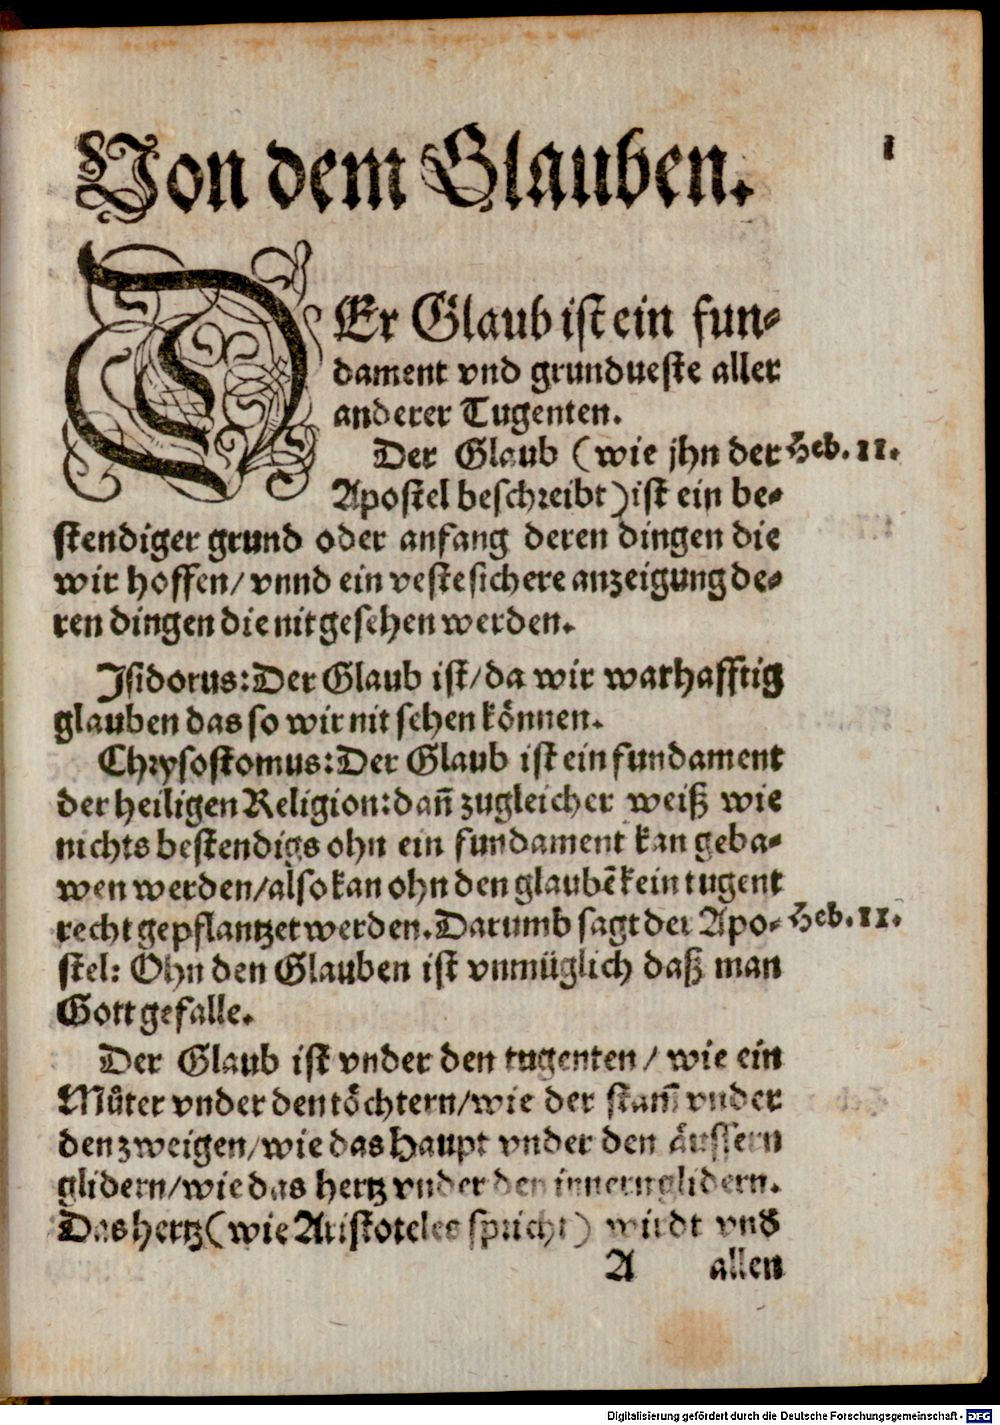 1
Von dem Glauben.
DEr Glaub ist ein fun-
dament vnd grundueste aller
anderer Tugenten.
Der Glaub (wie jhn der Heb. 11.
Apostel beschreibt) ist ein be-
stendiger grund oder anfang deren dingen die
wir hoffen/ vnnd ein veste sichere anzeigung de-
ren dingen die nit gesehen werden.
Isidorus: Der Glaub ist/ da wir warhafftig
glauben das so wir nit sehen können.
Chrysostomus: Der Glaub ist ein fundament
der heiligen Religion: dañ zugleicher weiß wie
nichts bestendigs ohn ein fundament kan geba-
wen werden/ also kan ohn den glaubẽ kein tugent
recht gepflantzet werden. Darumb sagt der Apo- Heb. 11.
stel: Ohn den Glauben ist vnmüglich daß man
Gott gefalle.
Der Glaub ist vnder den tugenten/ wie ein
Můter vnder den töchtern/ wie der stam̃ vnder
den zweigen/ wie das Haupt vnder den äussern
glidern/ wie das hertz vnder den innern glidern.
Das hertz (wie Aristoteles spricht) wirdt vnd
A allen
Digitalisierung gefördert durch die Deutsche Forschungsgemeinschaft - DFG